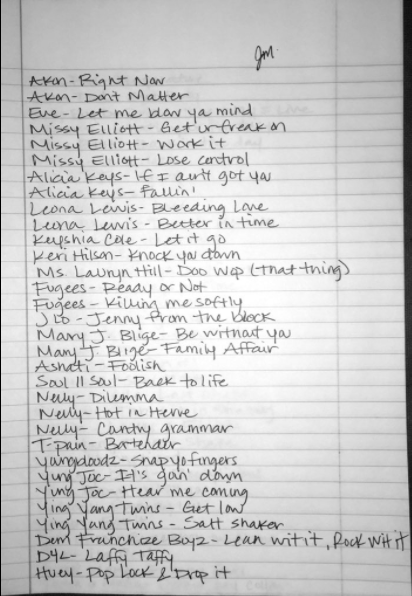 JM
Akon - Right Now
Akon - Dont Matter
Eve - Let me blow ya mind
Missy Elliott - Get ur freak on
Missy Elliott - Work it
Missy Elliott - Lose control
Alicia Keys - If I ain't got you
Alicia Keys - Fallin'
Leona Lewis - Bleeding Love
Leona Lewis - Better in time
Keyshia Cole - Let it go
Keri Hilson - Knock you down
Ms. Lauryn Hill - Doo Wop (that thing)
Fugees - Ready or Not
Fugees - Killing me softly
J Lo - Jenny from the block
Mary J. Blige - Be without you
Mary J. Blige - Family Affair
Ashati - Foolish
Soul II Soul - Back to life
Nelly - Dilemma
Nelly - Hot in Herre
Nelly - Cantry grammar
T-pain - Bartender
Yungdoudz - Snap yo fingers
Yung Joc - It's goin' down
Yung Joc - Hear me coming
Ying Yang Twins - Get low
Ying Yang Twins - Salt shaker
Dem Franchize Boyz - Lean wit it, Rock wit it
D4L - Laffy Taffy
Huey - Pop Lock & Drop it